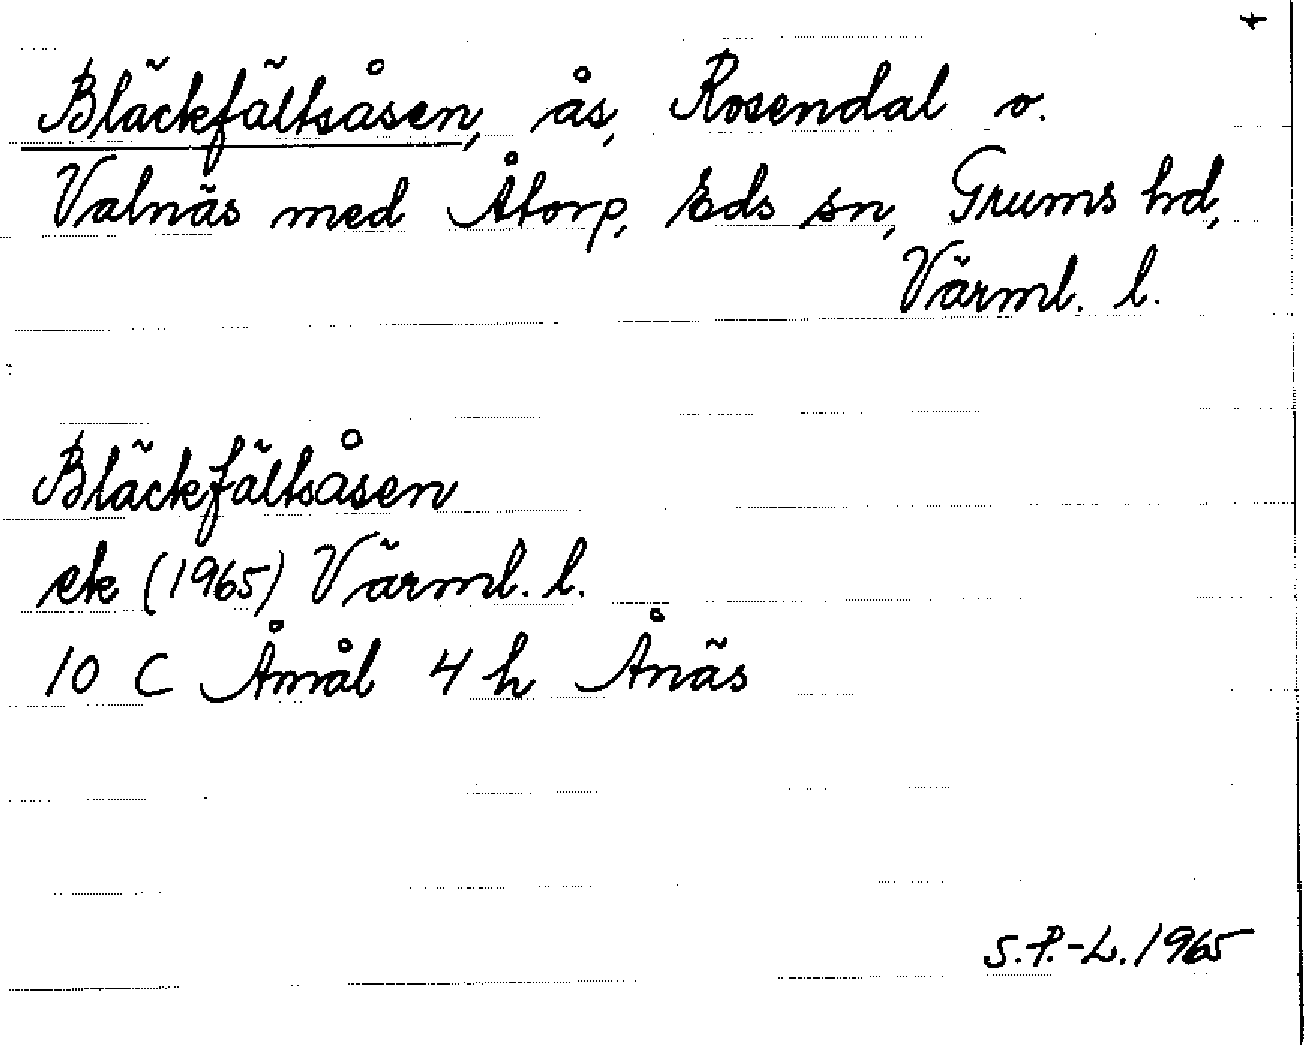 Bläckfältsåsen, ås, Rosendal o.
Valnäs med Åtorp, Eds sn, Grums hd,
Värml. l.
Bläckfältsåsen
ek (1965) Värml. l.
10 C Åmål 4 h Ånäs
S.P.-L. 1965